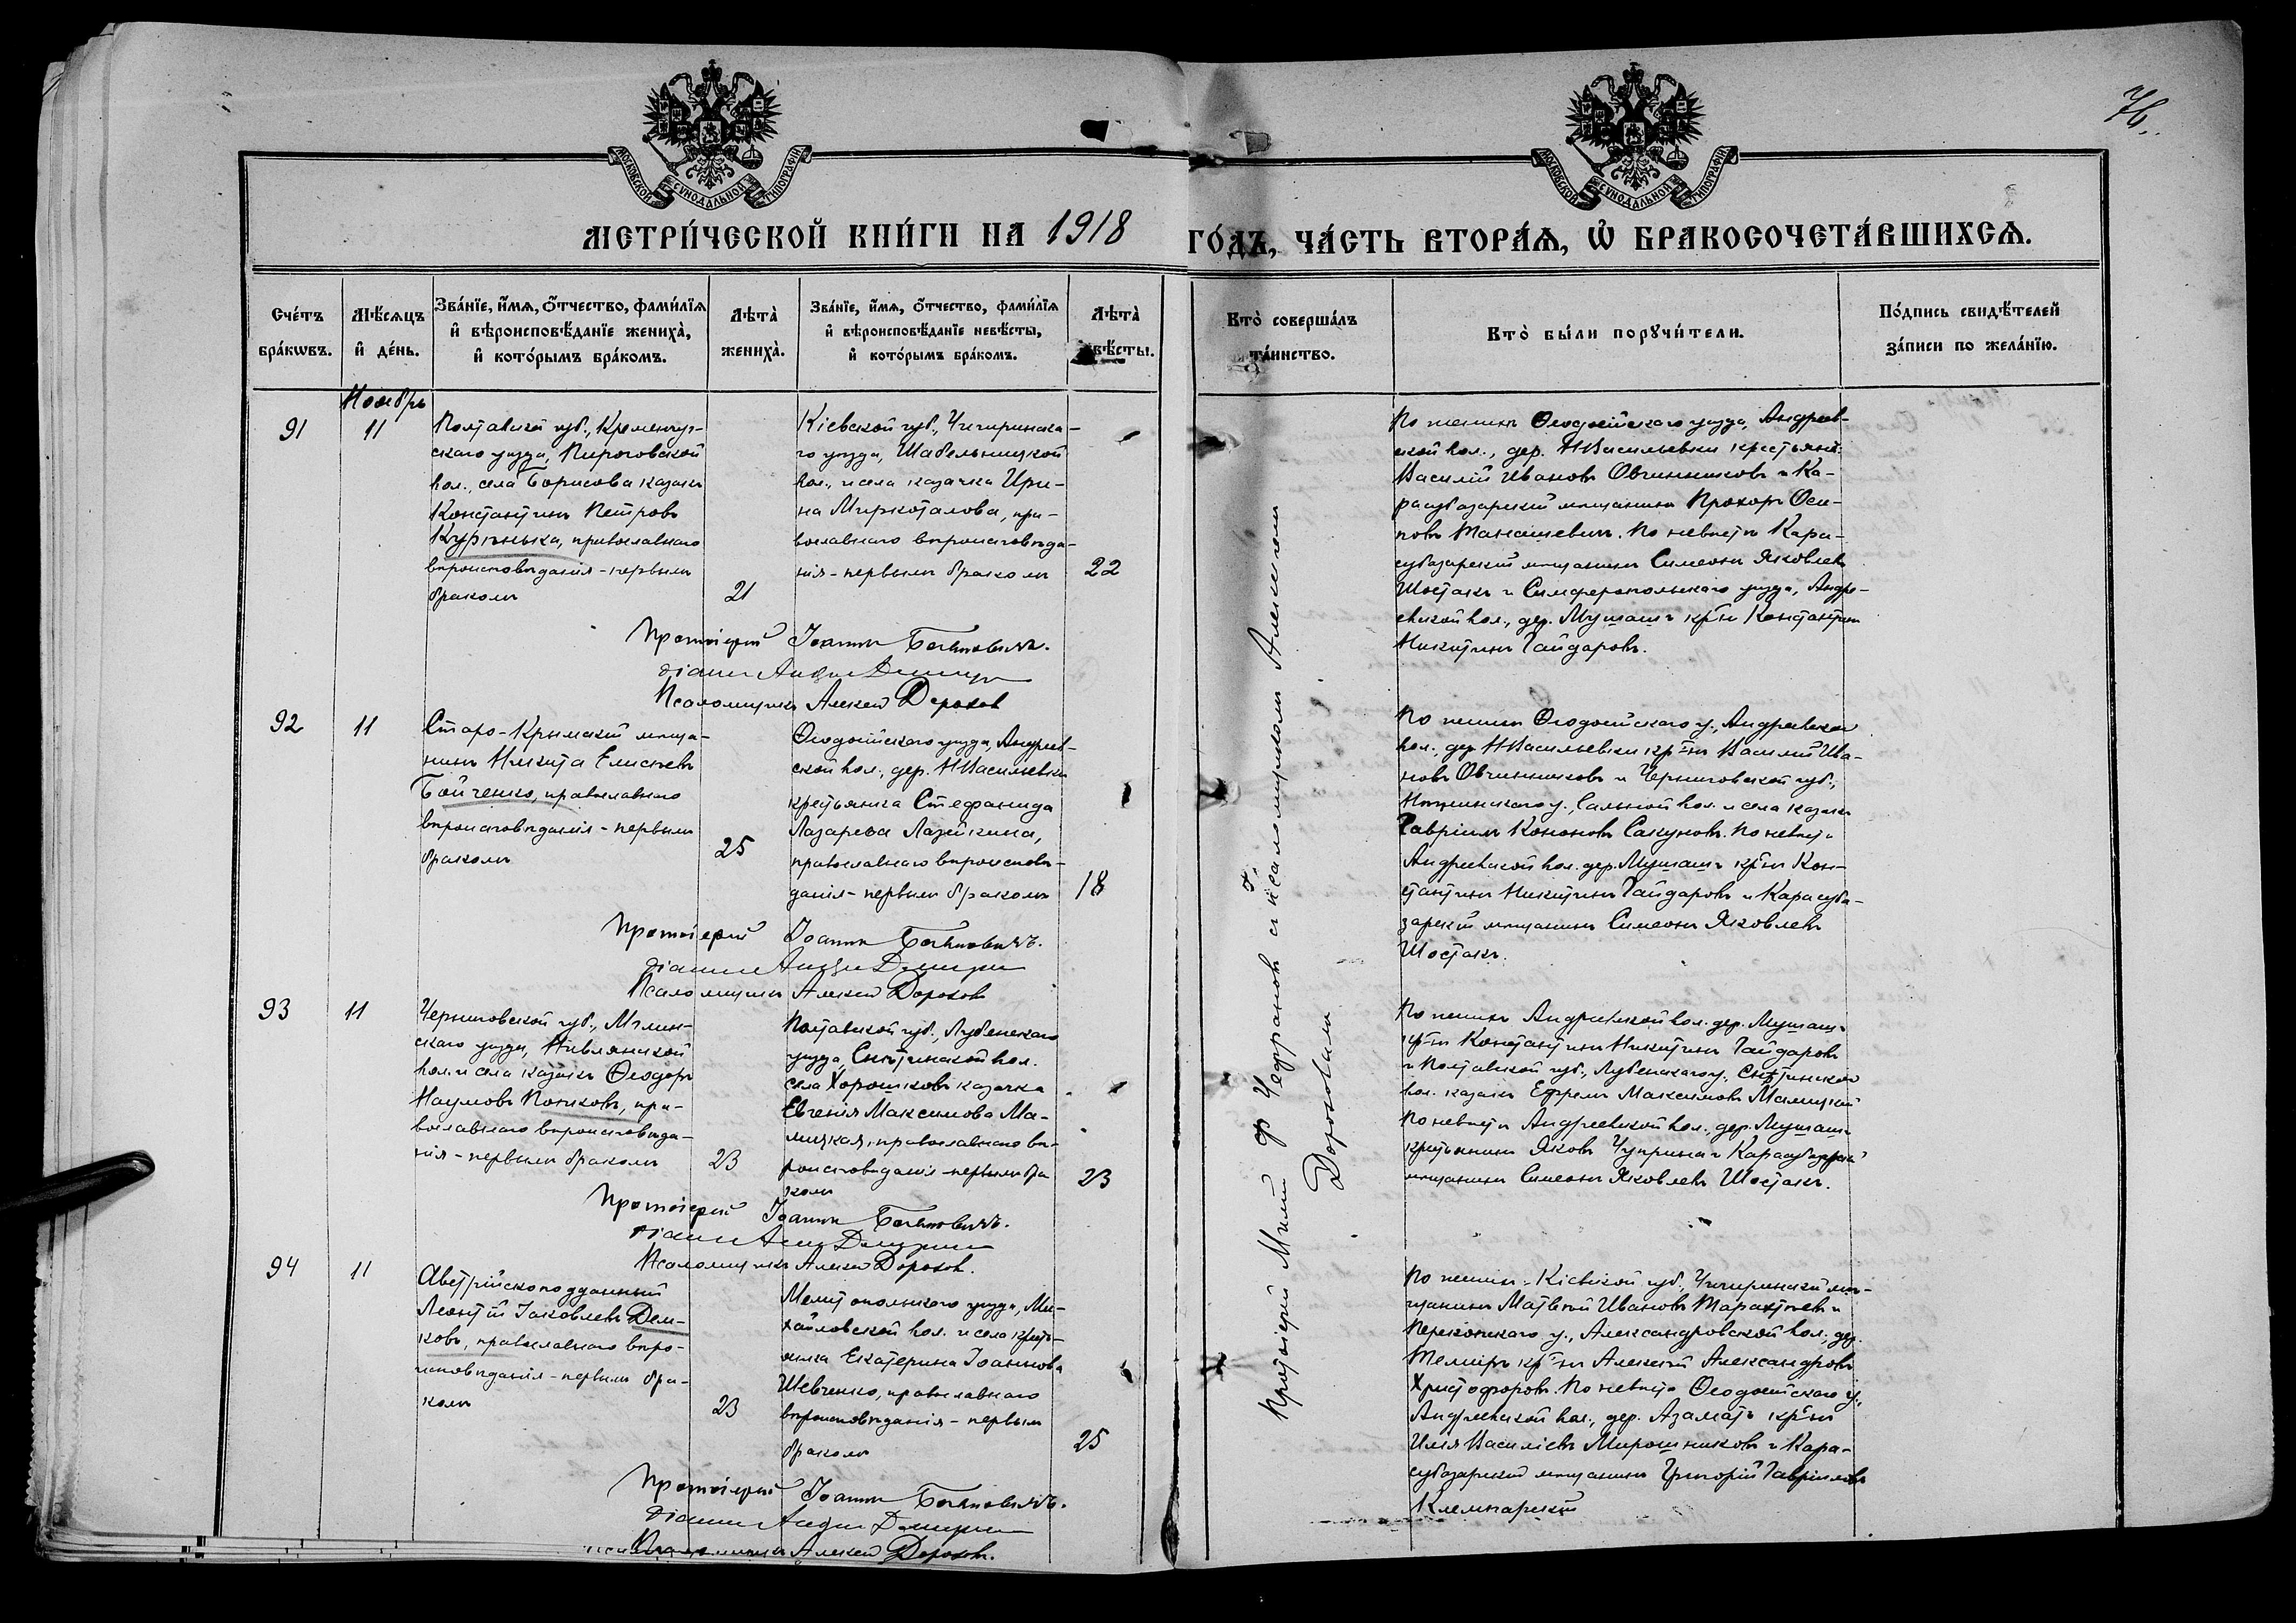 76.
МОСКОВСКОЙ СѴНОДАЛЬНОЙ ТИПОГРАФІИ
МОСКОВСКОЙ СѴНОДАЛЬНОЙ ТИПОГРАФІИ
МЕТРИ́ЧЕСКОЙ КНИ́ГИ НА 1918 ГО́ДЪ, ЧА́СТЬ ВТОРА́Ѧ, Ѡ БРАКОСОЧЕТА́ВШИХСѦ.
Сче́тъ бра́кѡвъ.
Мѣ́сѧцъ и҆ де́нь.
Зва́нїе, и҆́мѧ, ѻ҆́тчество, фами́лїѧ
и҆ вѣроисповѣ́данїе жениха̀,
и҆ кото́рымъ бра́комъ.
Лѣта̀ жениха̀.
Зва́нїе, и҆́мѧ, ѻ҆́тчество, фами́лїѧ
и҆ вѣроисповѣ́данїе невѣ́сты,
и҆ кото́рымъ бра́комъ.
Лѣта̀ вѣ́сты.
Кто̀ соверша́лъ
та́инство.
Кто̀ бы́ли порꙋчи́тели.
По́дпись свидѣ́телей
за́писи по жела́нїю.
Ноябрь
91
11
Полтавской губ., Кременчуг-
скаго уѣзда, Пироговской
вол., села Борисова казакъ
Константинъ Петровъ
православнаго
вѣроисповѣданія - первымъ
бракомъ
21
Кіевской губ., Чигиринска-
го уѣзда, Шабельницкой
вол., и села казачка Ири-
на Миркоталова, пра-
вославнаго вѣроисповѣда-
нія - первымъ бракомъ
22
По женихѣ Ѳеодосійскаго уѣзда, Андреев-
ской вол., дер. Н Васильевки крестьян.
Василій Ивановъ Овчинниковъ и Ка-
расубазарскій мѣщанинъ Прохоръ Оси-
повъ Танашевичъ. По невѣстѣ Кара-
субазарскій мѣщанинъ Симеонъ Яковлевъ
Шостакъ и Симферопольскаго уѣзда, Андре-
евской вол., дер. Мушашъ кр-нъ Константинъ
Никитинъ Гайдаровъ.
Протоіерей Іоаннъ
Діаконъ
Псаломщикъ Алексѣй Дороховъ
92
11
Старо-Крымскій мѣща-
нинъ Никита Елисѣевъ
Бойченко, православнаго
вѣроисповѣданія - первымъ
бракомъ
25
Ѳеодосійскаго уѣзда, Андреев-
ской вол., дер. Н Васильевки
крестьянка Стефанида
Лазарева Лазейкина,
православнаго вѣроисповѣ-
данія - первымъ бракомъ
18
По женихѣ Ѳеодосійскаго у., Андреевской
вол., дер. Н Васильевки кр-нъ Василій Ива-
новъ Овчинниковъ и Черниговской губ.,
Нѣжинскаго у., вол. и села казакъ
Гавріилъ Кононовъ Сакуновъ. По невѣстѣ
Андреевской вол. дер. Мушашъ кр-нъ Кон-
стантинъ Никитинъ Гайдаровъ и Карасуба-
зарскій мѣщанинъ Симеонъ Яковлевъ
Шостакъ.
Протоіерей Іоаннъ
Діаконъ
Псаломщикъ Алексѣй Дороховъ
93
11
Черниговской губ., Мглин-
скаго уѣзда, Нивлянской
вол. и села казакъ Ѳеодоръ
Наумовъ Поповъ, пра-
вославнаго вѣроисповѣда-
нія - первымъ бракомъ
23
Полтавской губ., Лубенскаго
уѣзда, Снѣтинской вол.
села Хорошковъ казачка
Евгенія Максимова Ма-
лицкая, православнаго вѣ-
роисповѣданія - первымъ бра
комъ
23
По женихѣ Андреевской вол. дер. Мушашъ
кр-нъ Константинъ Никитинъ Гайдаровъ
и Полтавской губ., Лубенскаго у., Снѣтинской
вол. казакъ Ефремъ Максимовъ Малицкій
По невѣстѣ Андреевской вол., дер. Мушашъ
крестьянинъ Яковъ Чуприна и Карасубазарскій
мѣщанинъ Симеонъ Яковлевъ Шостакъ.
Протоіерей Іоаннъ
Діаконъ
Псаломщикъ Алексѣй Дороховъ.
94
11
Австрійскоподданный
Леонтій Іаковлевъ Дем-
ковъ, православнаго вѣро-
исповѣданія - первымъ бра-
комъ
23
Мелитопольскаго уѣзда, Ми-
хайловской вол. и села кресть-
янка Екатерина Іоаннова
Шевченко, православнаго
вѣроисповѣданія - первымъ
бракомъ
25
По женихѣ - Кіевской губ. Чигиринскій мѣ-
щанинъ Матвѣй Ивановъ и
Перекопскаго у., Александровской вол., дер.
Темиръ кр-нъ Алексѣй Александровъ
Христофоровъ. По невѣстѣ Ѳеодосійскаго у.,
Андреевской вол., дер. Азаматъ кр-нъ
Илія Василіевъ Мирошниковъ и Кара-
субазарскій мѣщанинъ Григорій Гавріиловъ
Клемпарскій
Протоіерей Іоаннъ
Діаконъ
Псаломщикъ Алексѣй Дороховъ.
Протоіерей съ псаломщикомъ Алексѣемъ
Дороховымъ